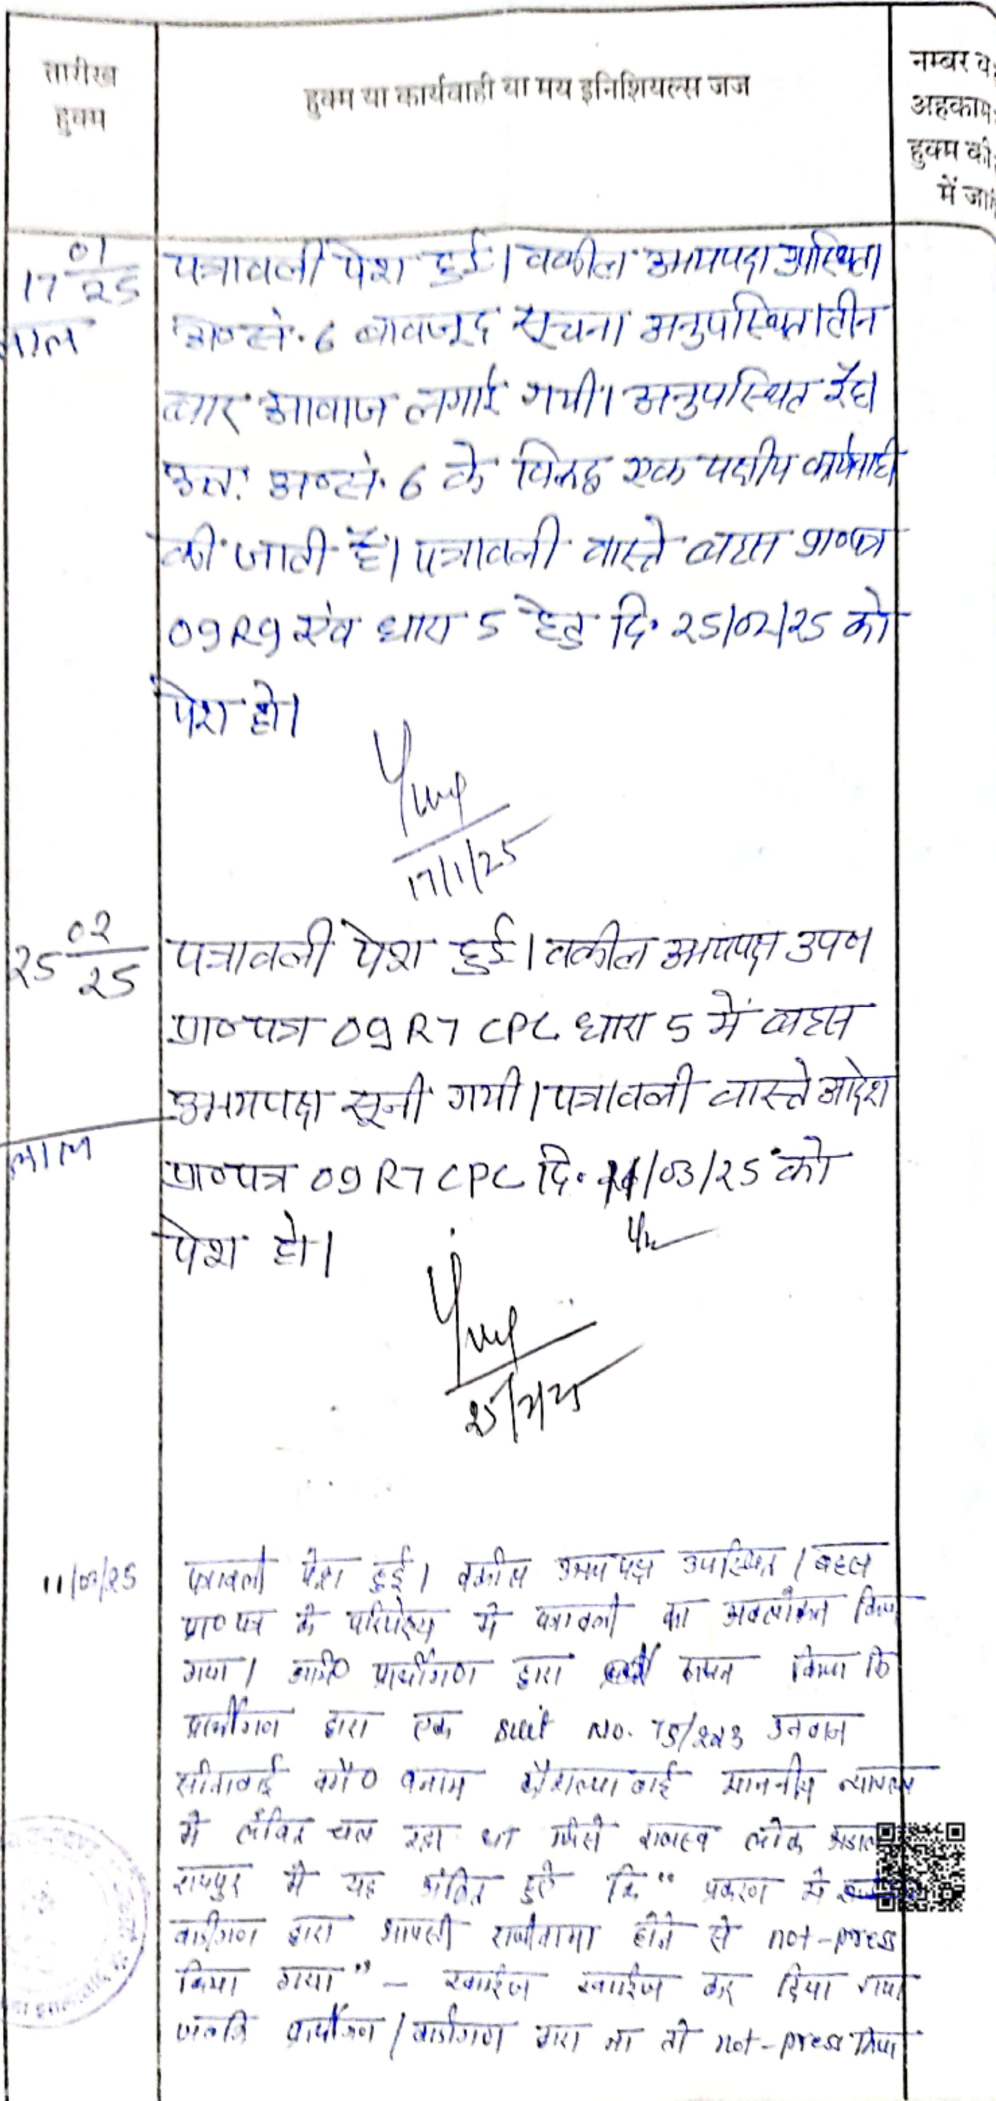 तारीख
हुक्म
हुक्म या कार्यवाही या मय इनिशियल्स जज
नम्बर व
अहकाम
हुक्म की
में जा
17 01/25
पत्रावली पेश हुई। वकील उभयपक्ष उपस्थित।
अ०सं. 6 बावजूद सूचना अनुपस्थित। तीन
लाल
बार आवाज लगाई गयी। अनुपस्थित रहे।
अतः अ०सं. 6 के विरूद्ध एक पक्षीय कार्यवाही
की जाती है। पत्रावली वास्ते बहस प्रा०पत्र
09R9 एंव धारा 5 हेतु दि. 25/02/25 को
पेश हो।
17/1/25
25 02/25
पत्रावली पेश हुई। वकील उभयपक्ष उप०
प्रा० पत्र 09 R7 CPC धारा 5 में बहस
उभयपक्ष सूनी गयी। पत्रावली वास्ते आदेश
लाल
प्रा०पत्र 09 R7 CPC दि. /03/25 को
पेश हो।
25/2/25
11/03/25
पत्रावली पेश हुई। वकील उभय पक्ष उपस्थित। बहस
प्रा० पत्र के परिपेक्ष्य में पत्रावली का अवलोकन किया
गया। प्रार्थीगण द्वारा कथन किया कि
प्रार्थीगण द्वारा एक suit No. उनवान
सीताबाई बनाम कौशल्या बाई माननीय न्यायालय
में लंबित चल रहा था जिसे राजस्व लोक अदा
रायपुर में यह अंकित हुऐ कि " प्रकरण में
वादीगण द्वारा आपसी राजीनामा होने से not-press
किया गया" – खारीज खारीज कर दिया गया
जबकि प्रार्थीगण / वादीगण द्वारा ना तो not-press किया